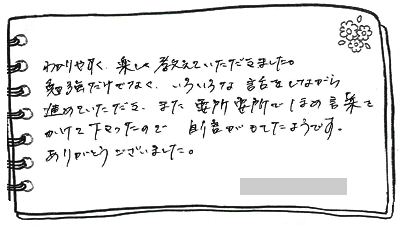 わかりやすく、楽しく教えていただきました。
勉強だけでなく、いろいろな話をしながら
進めていただき、また要所要所でほめ言葉を
かけて下さったので自信がもてたようです。
ありがとうございました。